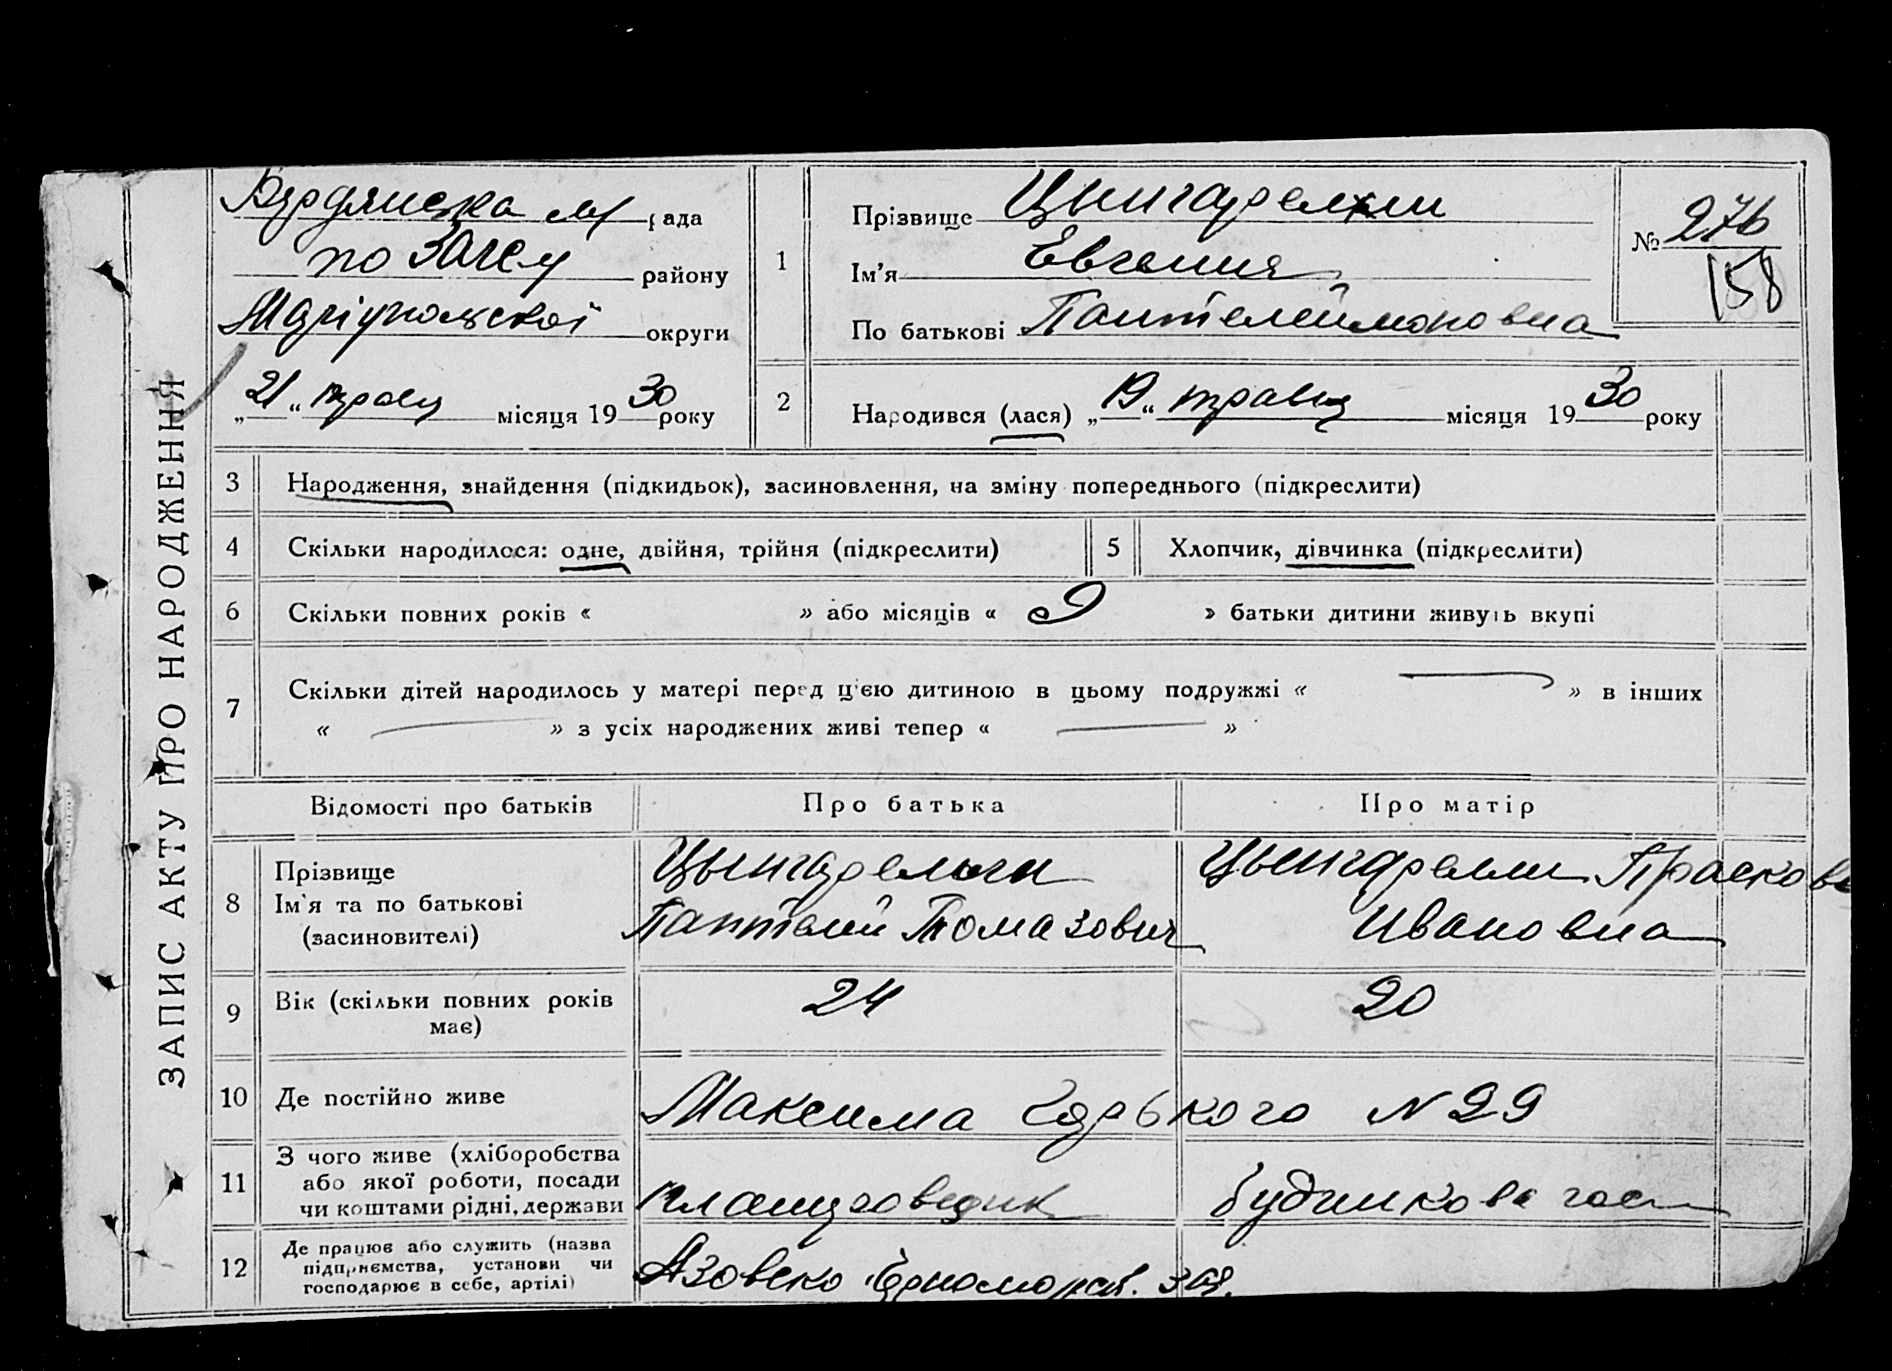 ЗАПИС АКТУ ПРО НАРОДЖЕННЯ
Бердянська м/рада
по Загсу району
Маріупольської округи
„21“ травц місяця 1930 року
1
Прізвище Цынгарелли
Ім’я Евгения
По батькові Пантелеймоновна
№ 276
158
2
Народився (лася) „19“ травц місяця 1930 року
3 Народження, знайдення (підкидьок), засиновлення, на зміну попереднього (підкреслити)
4 Скільки народилося: одне, двійня, трійня (підкреслити)
5 Хлопчик, дівчинка (підкреслити)
6 Скільки повних років « » або місяців « 9 » батьки дитини живуть вкупі
7 Скільки дітей народилось у матері перед ц’єю дитиною в цьому подружжі « — » в інших
« — » з усіх народжених живі тепер « — »
Відомості про батьків Про батька Про матір
8 Прізвище
Ім’я та по батькові
(засиновителі)
Цынгарелли
Пантелей Томазович
Цынгарелли Прасковь
Ивановна
9 Вік (скільки повних років
має)
24 20
10 Де постійно живе Максима Горького N 29
11 З чого живе (хліборобства
або якої роботи, посади
чи коштами рідні, держави
12 Де працює або служить (назва
підприємства, установи чи
господарює в себе, артілі)
Азовско Черноморск. зав.